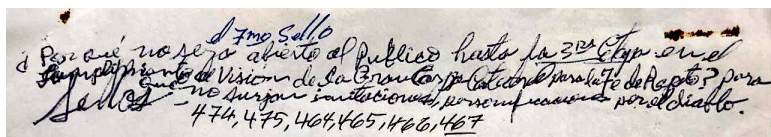 el 7mo Sello
¿Por qué no será abierto al público hasta la 3ra Etapa en el
Cumplimiento de Vision de la Gran Carpa Catedral para la Fe de Rapto? para
Sellos - que no surjan imitaciones, por el diablo.
474, 475, 464, 465, 466, 467